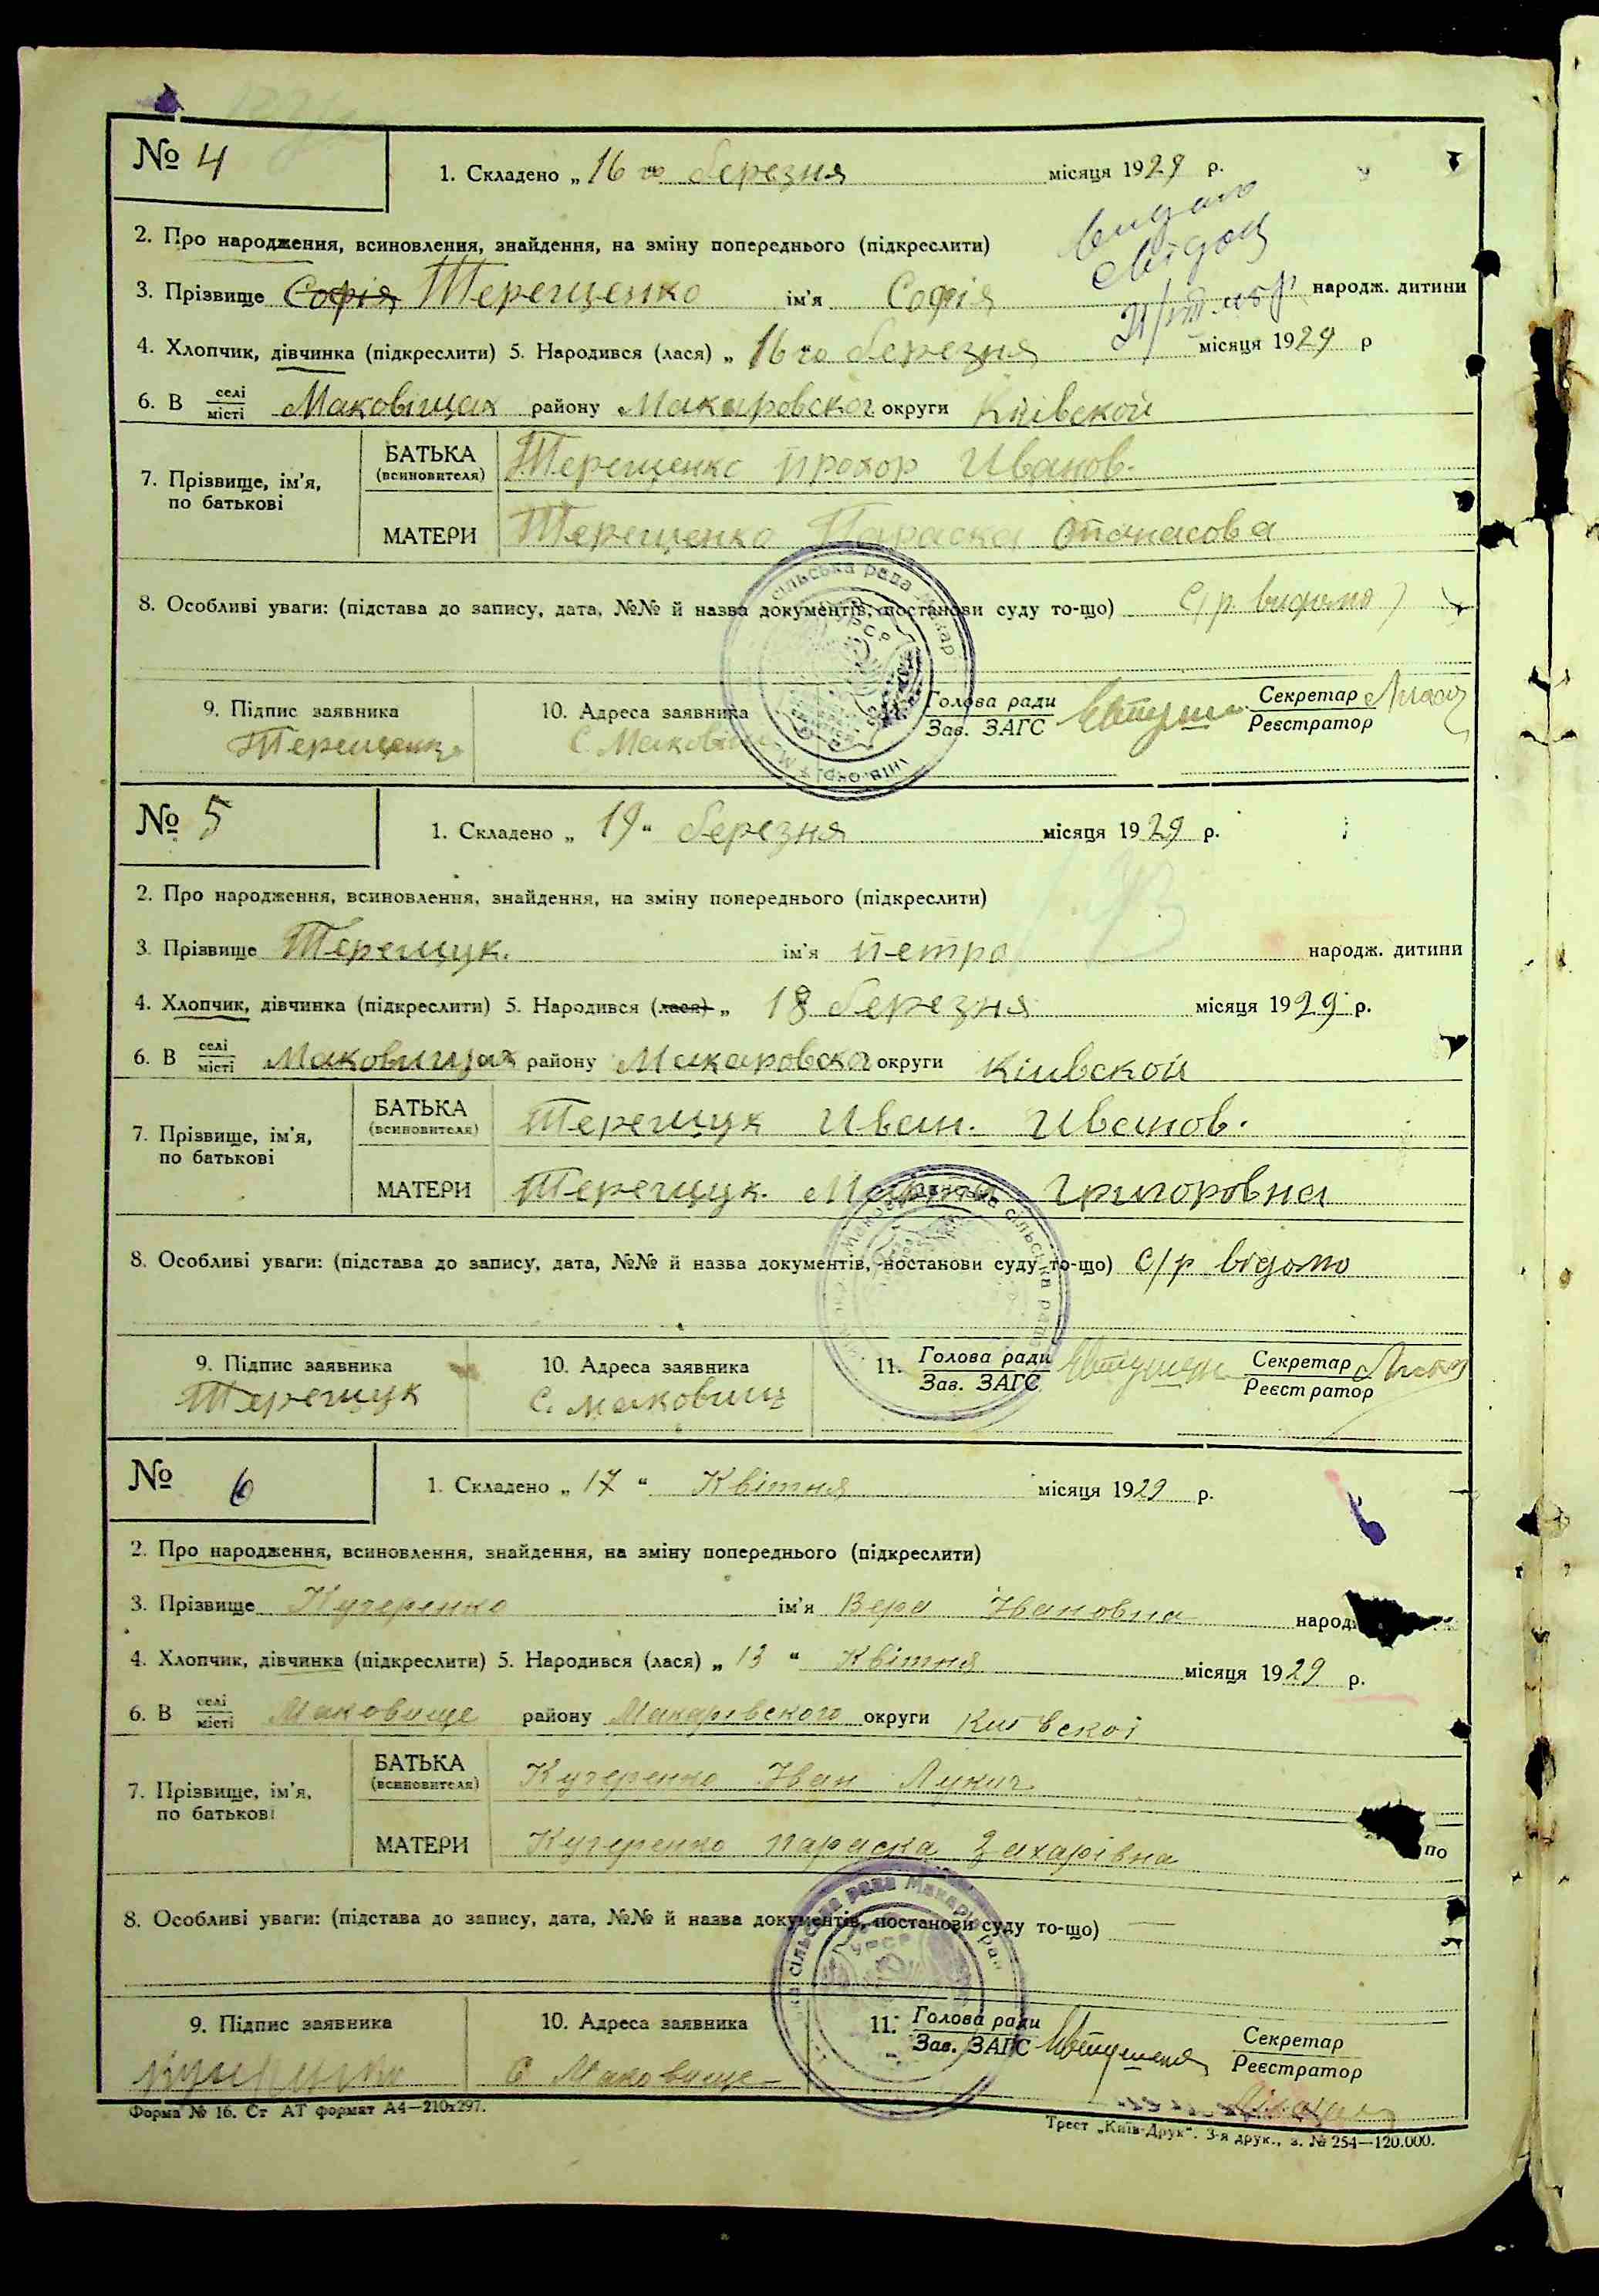 № 4
1. Складено „ 16 го " березня місяця 1929 р.
2. Про народження, всиновлення, знайдення, на зміну попереднього (підкреслити)
видано
3. Прізвище Софія Терещенко ім'я Софія народж. дитини
4. Хлопчик, дівчинка (підкреслити) 5. Народився (лася) „ 16 го березня місяця 1929 р
6. В селі/місті Маковищах району Макаровског округи Київской
7. Прізвище, ім'я, по батькові
БАТЬКА (всиновителя) Терещенко Прохор Иванов.
МАТЕРИ Терещенко Параска Опанасова
8. Особливі уваги: (підстава до запису, дата, №№ й назва документів, постанови суду то-що) С/р видомо
сільська рада Макар
УРСР
9. Підпис заявника
Терещенко
10. Адреса заявника
С. Маковищ
Голова ради/Зав. ЗАГС
Секретар/Реєстратор
№ 5
1. Складено „ 19 " березня місяця 1929 р.
2. Про народження, всиновлення, знайдення, на зміну попереднього (підкреслити)
3. Прізвище Терещук. ім'я петро народж. дитини
4. Хлопчик, дівчинка (підкреслити) 5. Народився (лася) „ 18 березня місяця 1929 р.
6. В селі/місті Маковищах району Макаровског округи Кіивской
7. Прізвище, ім'я, по батькові
БАТЬКА (всиновителя) Терещук Иван. Иванов.
МАТЕРИ Терещук. Григоровна
8. Особливі уваги: (підстава до запису, дата, №№ й назва документів, постанови суду то-що) С/р відомо
сільська рада
9. Підпис заявника
Терещук
10. Адреса заявника
С. Маковищ
11. Голова ради/Зав. ЗАГС
Секретар/Реєстратор
№ 6
1. Складено „ 17 " Квітня місяця 1929 р.
2. Про народження, всиновлення, знайдення, на зміну попереднього (підкреслити)
3. Прізвище Кучеренко ім'я Вера Івановна народ
4. Хлопчик, дівчинка (підкреслити) 5. Народився (лася) „ 13 " Квітня місяця 1929 р.
6. В селі/місті Маковище району Макарівского округи Київскої
7. Прізвище, ім'я, по батькові
БАТЬКА (всиновителя) Кучеренко Іван Лукич
МАТЕРИ Кучеренко Параска Захарівна
по
8. Особливі уваги: (підстава до запису, дата, №№ й назва документів, постанови суду то-що) —
сільська рада Макарів ра
УРСР
9. Підпис заявника
10. Адреса заявника
С Маковище
11. Голова ради/Зав. ЗАГС
Секретар/Реєстратор
Форма № 16. Ст АТ формат А4—210x297.
Трест „Київ-Друк". 3-я друк., з. № 254—120.000.